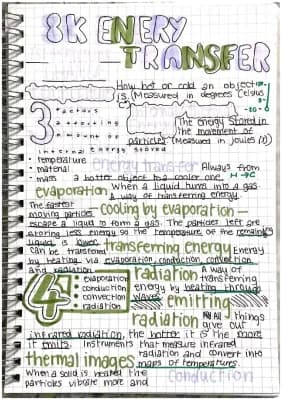 8K ENERY
TRANSFER
How hot or cold an object
is. (Measured in degrees Celsius
3 factors
affecting
amount of
internal energy stored
The energy stored in
the movement of
particles (Measured in Joules (J)
• temperature
• material
• mass
energy transfer
Always from
a hotter object to a cooler one. H→C
evaporation When a liquid turns into a gas.
A way of transferring energy.
The fastest
moving particles cooling by evaporation —
escape a liquid to form a gas. The particles left are
storing less energy so the temperature of the remaining
liquid is lower. transferring energy Energy
can be transferred
by heating via evaporation, conduction, convection
and radiation.
4 evaporation
conduction
convection
radiation
radiation A way of
transferring
energy by heating through
waves. emitting
radiation All things
give out
infrared radiation, the hotter it is the more
it emits. Instruments that measure infrared
radiation and convert into
thermal images maps of temperatures.
When a solid is heated the
particles vibrate more and conduction